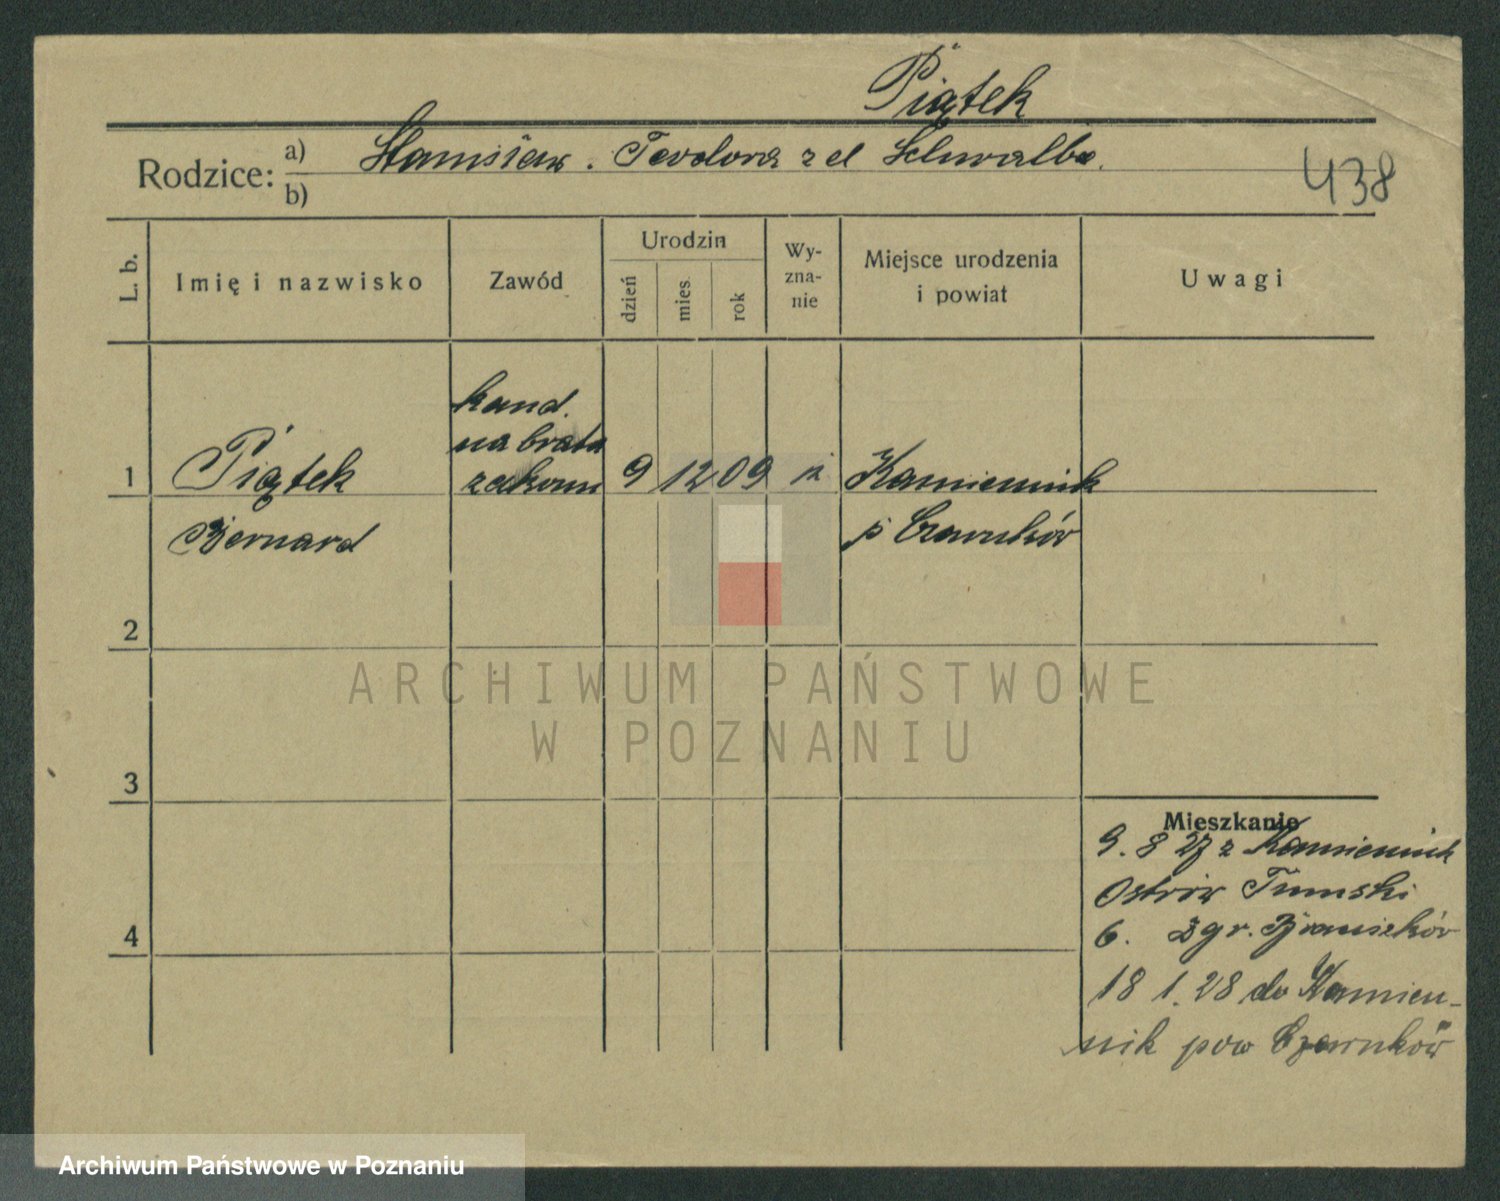 Piątek
Rodzice: a) Stanisław. Teodora z d Schwalbe.
b)
438
L. b.
Imię i nazwisko
Zawód
Urodzin
dzień
mies.
rok
Wy-
zna-
nie
Miejsce urodzenia
i powiat
Uwagi
kand.
na brata
zakonn
1 Piątek 9 12 09 k Kamiennik
Bernard p Czarnków
2
3
4
Mieszkanie
9. 8 27 z Kamiennik
Ostrów Tumski
6. Zgr.
18 1. 28 do Kamien-
nik pow Czarnków
ARCHIWUM PAŃSTWOWE
W POZNANIU
Archiwum Państwowe w Poznaniu